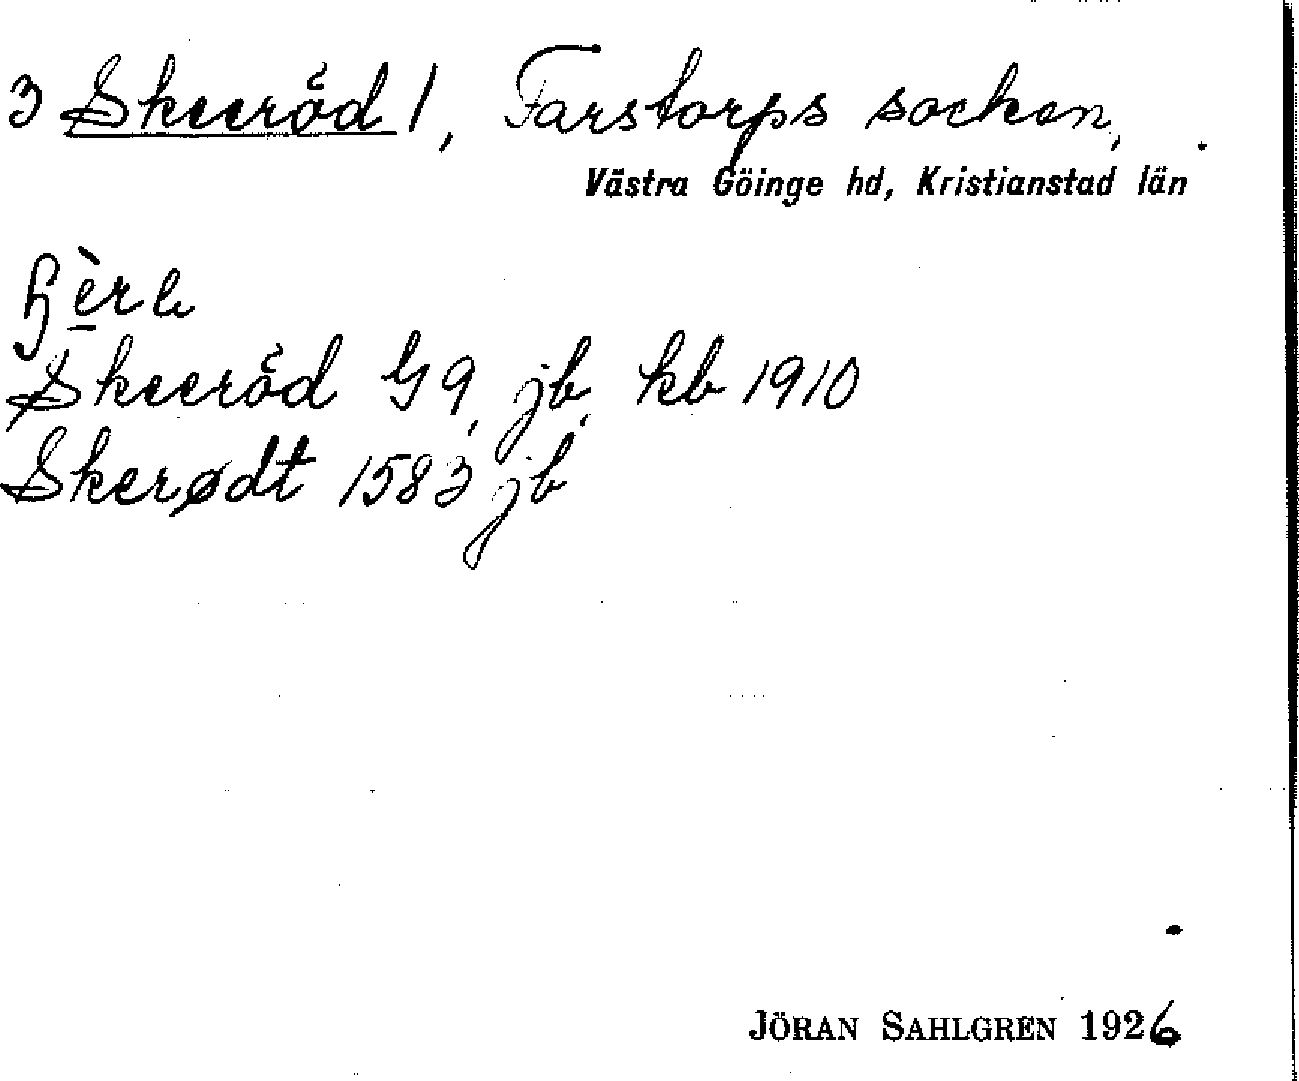 3 Skeeröd 1, Farstorps socken,
Västra Göinge hd, Kristianstad län
Skeeröd G9, jb, kb 1910
Skerødt 1583 jb
JÖRAN SAHLGREN 1926